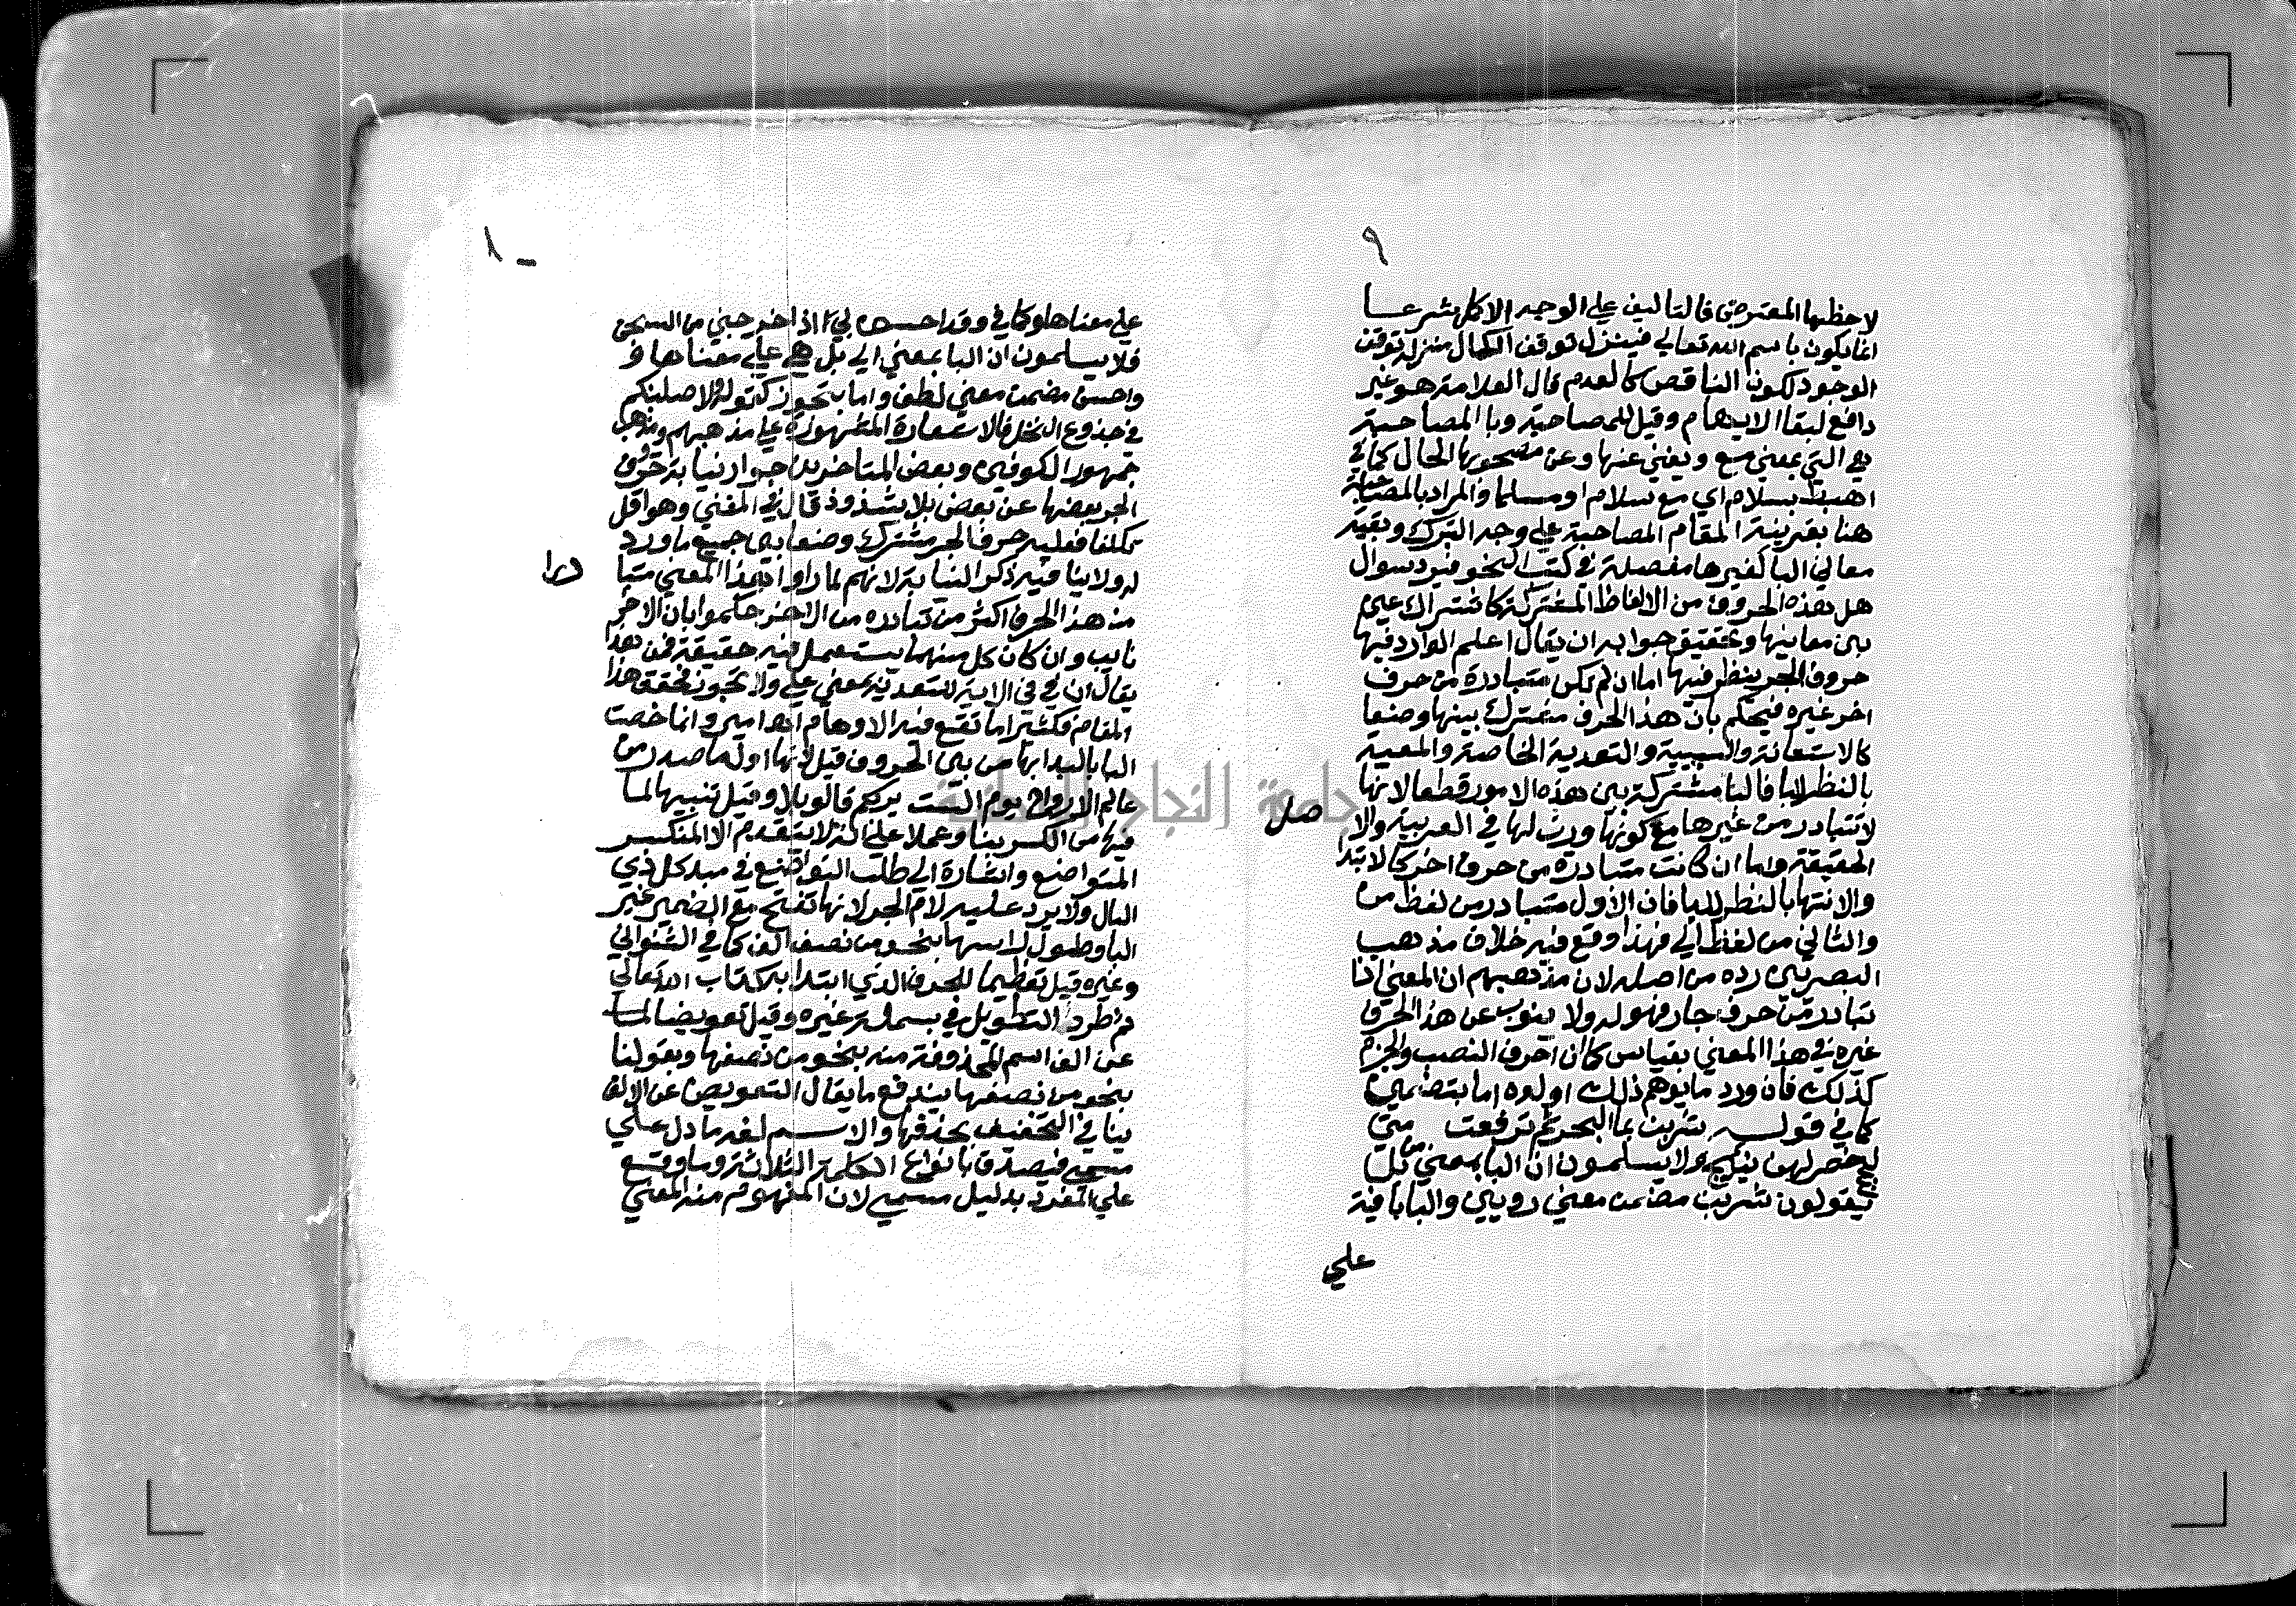 ٩
لاحظها المعترض فالتاليف علي الوجه الاكل شرعا
انما يكون باسم الله تعالي فينزل توقف الكمال منزلة توقف
الوجود لكون الناقص كالعدم قال العلامة هو غير
دافع لبقا الايهام وقيل للمصاحبة وبا المصاحبة
هي التي بمعني مع ويغني عنها وعن مصحوبها الحال كما في
اهبط بسلام اي مع سلام او مسلما والمراد بالمصاحبة
هنا بقرينة المقام المصاحبة علي وجه التبرك وبقية
معاني البا كغيرها مفصلة في كتب النحو فيرد سوال
هل هذه الحروف من الالفاظ المشتركة كاشتراك عين
بين معانيها وتحقيق جوابه ان يقال اعلم الوارد فيها
حروف الجر ينظر فيها اما ان لم تكن متبادرة من حرف
اخر غيره فيحكم بان هذا الحرف مشترك بينها وضعا
كالاستعانة والسببية والتعدية الخاصة والمعية
بالنظر للبا فالبا مشتركة بين هذه الامور قطعا لانها
لا تتبادر من غيرها مع كونها وردت لها في العربية والا
صل
الحقيقة واما ان كانت متبادرة من حرف اخر كالابتدا
والانتها بالنظر للبا فان الاول متبادر من لفظ من
والثاني من لفظ الي فهذا وقع فيه خلاف مذهب
البصريين رده من اصله لان مذهبهم ان المعني اذا
تبادر من حرف جار فهو له ولا ينوب عن هذا الحرف
غيره في هذا المعني بقياس كما ان احرف النصب والجزم
كذلك فان ورد ما يوهم ذلك اولوه اما بتضمين
كما في قوله شربن بما البحر ثم ترفعت متي
لجج خضر لهن نئيج ولا يسلمون ان البا بمعني من بل
يقولون شربن مضمن معني روين والبا باقية
علي
١٠
علي معناها وكما في وقد احسن بي اذ اخرجني من السجن
فلا يسلمون ان البا بمعني الي بل هي علي معناها
واحسن مضمن معني لطف واما بتجوز كقوله ولاصلبنكم
في جذوع النخل فالاستعارة المشهورة علي مذهبهم ومذهب
جمهور الكوفيين وبعض المتاخرين جواز نيابة حروف
الجر بعضها عن بعض بلا شذوذ قال في المغني وهو اقل
تكلفا فعليه حرف الجر مشترك وضعا بين جميع ما ورد
له ولا ينافيه ذكر النيابة لانهم لما راوا هذا المعني متبا
درا
من هذا الحرف اكثر من تبادره من الاخر حكموا بان الاخر
نايب وان كان كل منهما يستعمل فيه حقيقة فمن هذا
يقال ان في في الاية للتعدية بمعني علي ولا تجوز فحقق هذا
المقام فكثيرا ما تقع فيه الاوهام انما خصت
البا بالبدا بها من بين الحروف قيل لانها اول ما صدر من
عالم الارواح يوم الست بربكم قالوا بلا وقيل تنبيها لما
فيها من الكسر بنا وعملا علي انه لا يتقدم الا المنكسر
المتواضع واشارة الي طلب التواضع في مبدا كل ذي
البال ولا يرد عليه لام الجر لانها تفتح مع الضمير غير
اليا وطول راسها بنحو من نصف الف كما في الشنواني
وغيره قيل تعظيما للحرف الذي ابتدا به كتاب الله تعالي
ثم اطرد التطويل في بسملة غيره وقيل تعويضا لها
عن الف اسم المحذوفة منه بنحو من نصفها وبقولنا
بنحو من نصفها يندفع ما يقال التعويض عن الالف
ينافي التخفيف بحذفها والاسم لغة ما دل علي
مسمي فيصدق بانواع الكلمة الثلاثة وما وقع
علي المفرد بدليل مسمي لان المفهوم منه المعني
جامعة النجاح الوطنية